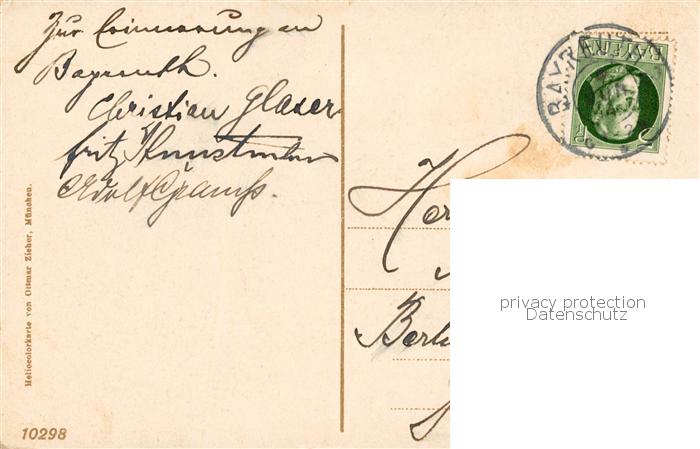 Zur Erinnerung an
Bayreuth.
Christian Glaser
Fritz Kunstmann
Adolf
BAYREUTH
BAYERN
Her
Berl
privacy protection
Datenschutz
Heliocolorkarte von Ottmar Zieher, München.
10298